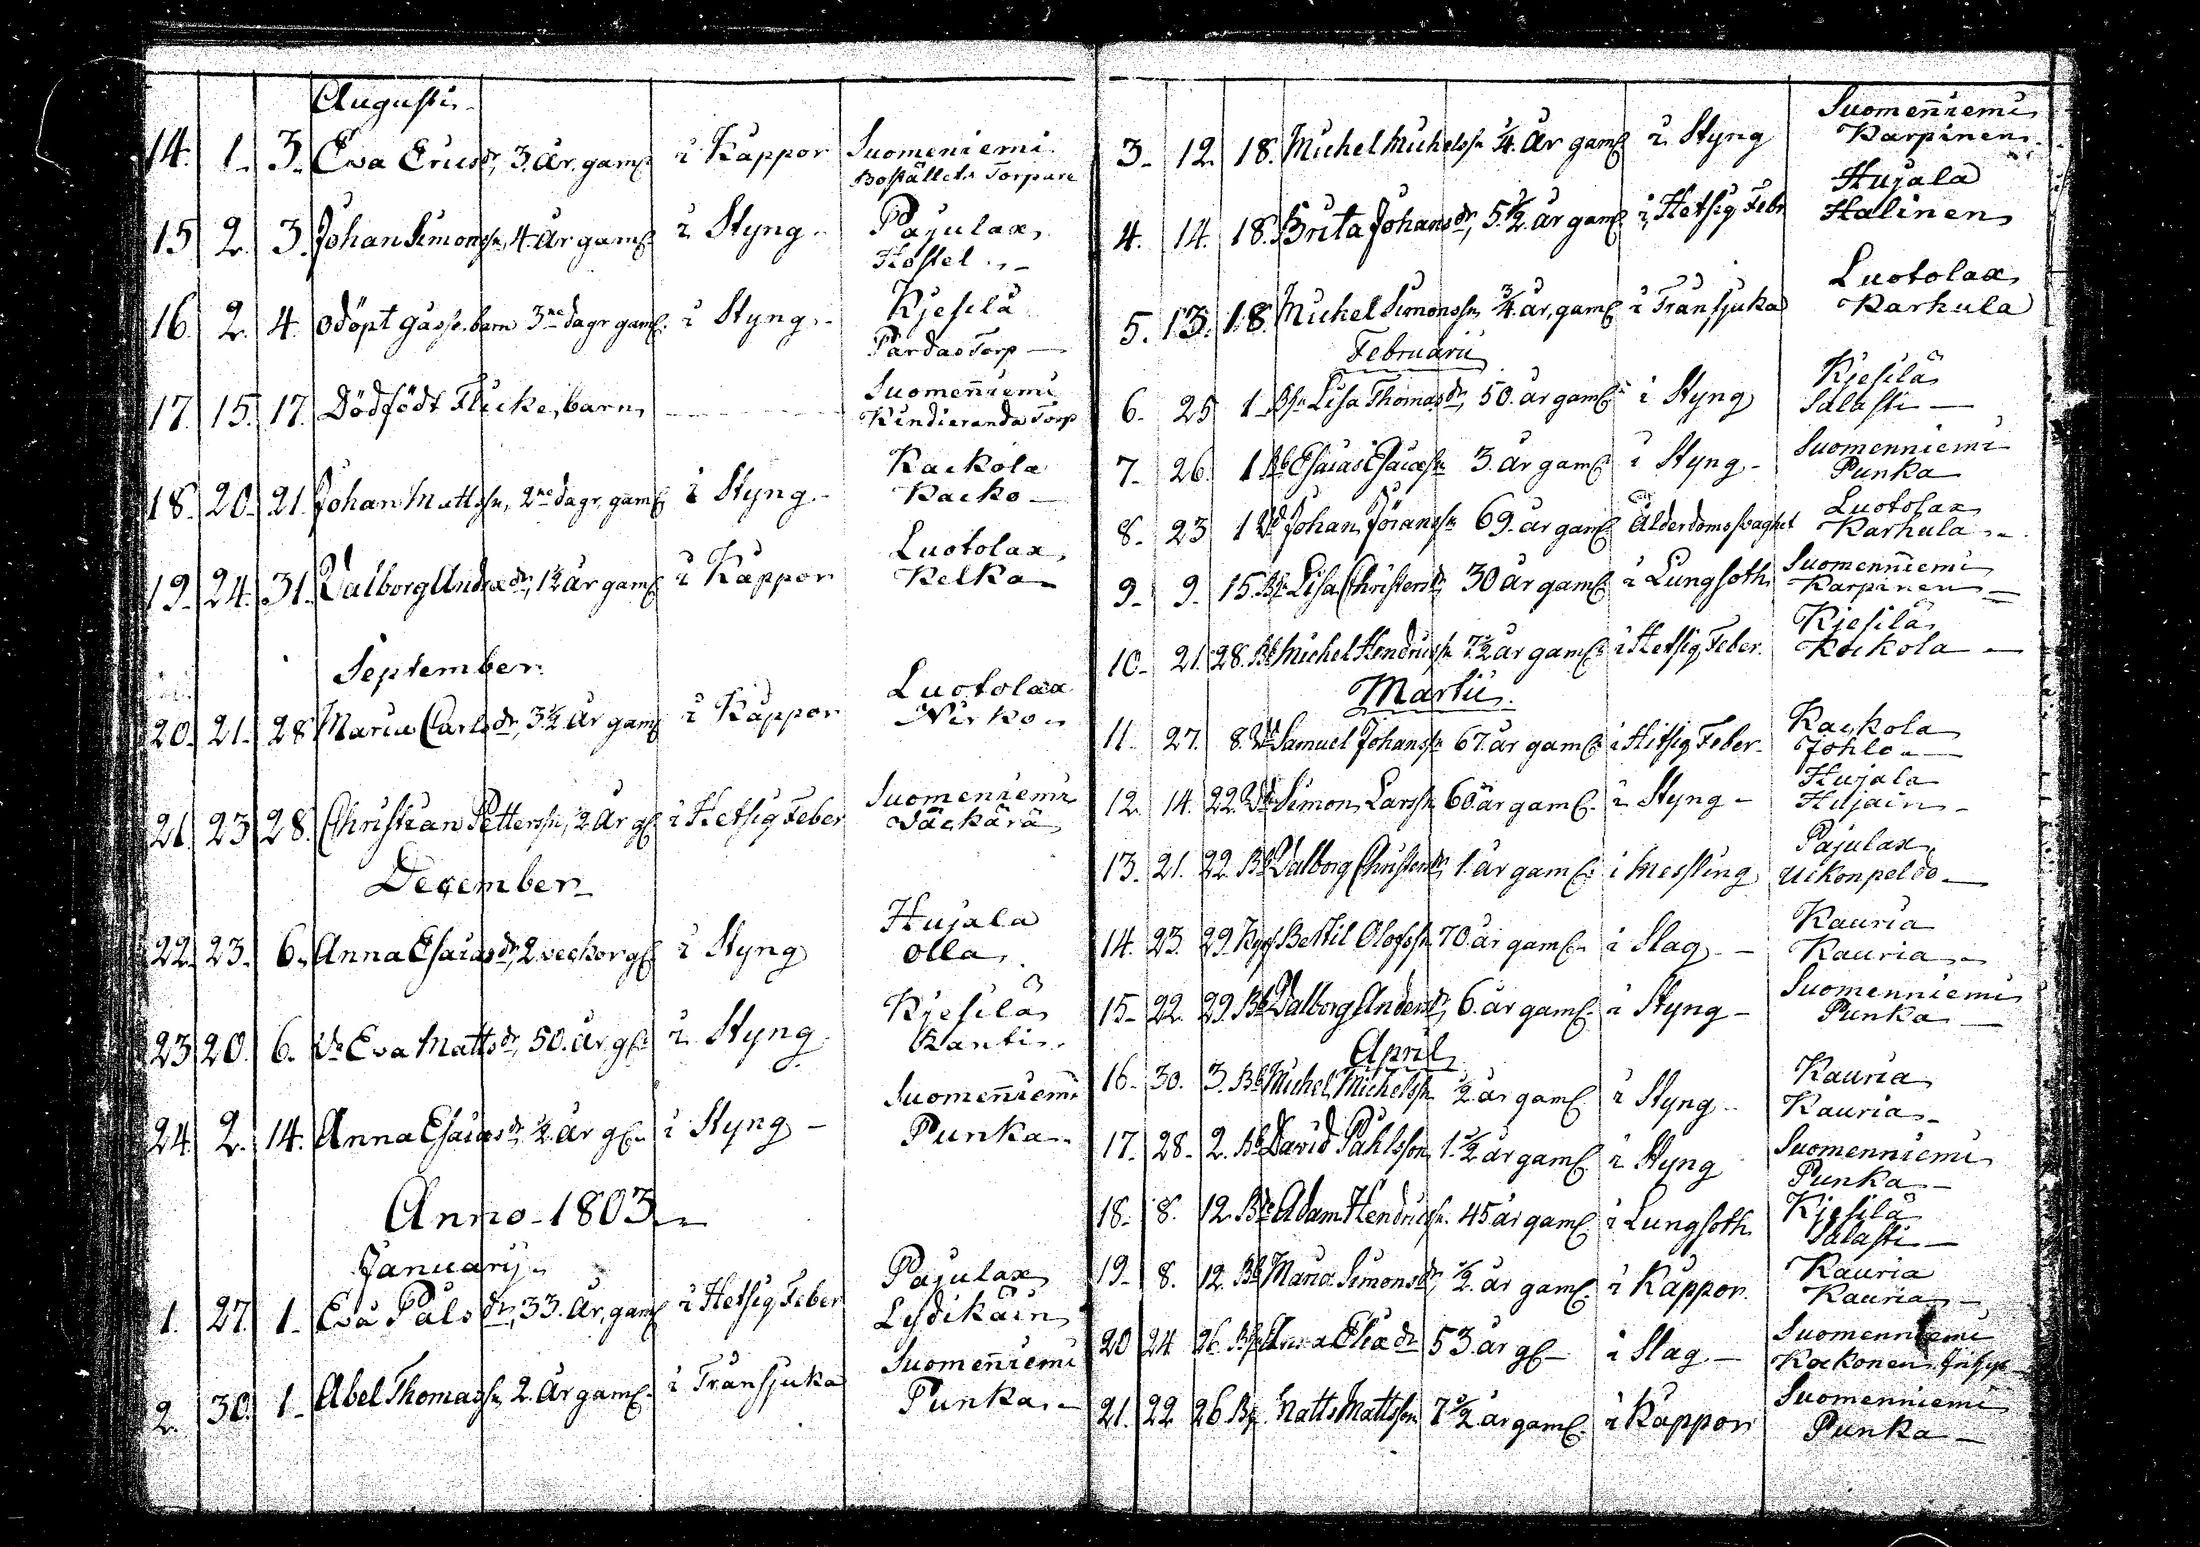 Augusti
14. 1. 3. Eva Ericsdr, 3. År. gaml. i Kappor Suomeniemi
Boställets Torpare
15 2. 3. Johan Simonssn, 4. År gaml. i Styng Pajulax
Hostel
16. 2. 4. odöpt gosse barn 3ne dagr gaml. i Styng Kjesilä
Pardas Torp
17. 15. 17. Dödfödt Flicke barn Suomen̄iemi
Kindieranda Torp
18. 20. 21. Johan Mattssn, 2ne dagr, gaml i Styng Kaekola
Kaeko
19. 24. 31. Valborg Andræ dr, 1½ År gaml i Kappor Luotolax
Kelka
September
20. 21. 28 Maria Carls dr, 3½ År gaml i Kappor Luotolax
Nirko
21. 23 28. Christian Petterssn, 2. År gl i Hetsig Feber Suomenniemi
Väckärä
December
22. 23. 6. Anna Esaiasdr, 2 veckor gl i Styng Hujala
Olla
23 20. 6. Eva Mattsdr, 50. År gl i Styng Kjesilä
Kanti
24. 2. 14. Anna Esaiasdr ½ År gl i Styng Suomen̄iemi
Punka
Anno 1803
Januarij
1. 27. 1. Eva Pålsdr, 33. År, gaml i Hetsig Feber Pajulax
Lydikäin
2. 30. 1. Abel Thomassn, 2. År gaml. i Transjuka Suomen̄iemi
Punka
3. 12. 18. Michel Michelssn ¼ År gaml i Styng Suomen̄iemi
Karpinen
4. 14. 18. Brita Johansdr, 5½ år gaml. i Hetsig Febr Hujala
Halinen
5. 13. 18. Michel Simonssn ¾ år, gaml i Transjuka Luotolax
Karhula
Februarii
6. 25 1. Lisa Thomasdr, 50. år gaml i Styng Kjesilä
Salasti
7. 26. 1 Esaias Esaiæssn 3. År gaml i Styng Suomenniemi
Punka
8. 23 1 Johan Jöranssn 69. år gaml Ålderdomssvaghet Luotolax
Karhula
9. 9. 15. Lisa Christersdr 30 år gaml. i Lungsoth Suomen̄iemi
Karpinen
10. 21. 28. Michel Hendricssn 7½ år gaml. i Hetsig Feber. Kjesilä
Kockola
Martii
11. 27. 8. Samuel Johanssn 67. år gaml. i Hitsig Feber Kackola
Johlo
12. 14. 22. Simon Larssn 60 år gaml. i Styng Hujala
Hujain
13. 21. 22. Valborg Christersdr, 1. år gaml. i Messling Pajulax
Uckonpeldo
14. 23. 29. Bertil Olofssn 70. år gaml. i Slag Kauria
Kauria
15. 22. 29. Valborg Andersdr, 6. år gaml. i Styng Suomenniemi
Punka
April
16. 30. 3. Michel Michelssn ½ år gaml. i Styng Kauria
Kauria
17. 28. 2. David Påhlsson 1½ år gaml. i Styng Suomenniemi
Punka
18. 8. 12. Adam Hendricssn. 45 år gaml. i Lungsoth Kjesilä
Salasti
19. 8. 12. Maria Simonsdr, ½ år gaml. i Kappor. Kauria
Kauria
20 24 26. Anna Eliædr 53. år gl i Slag Suomenniemi
Kockonen
21. 22 26. Matts Mattsson 7½ år gaml. i Kappor Suomenniemi
Punka